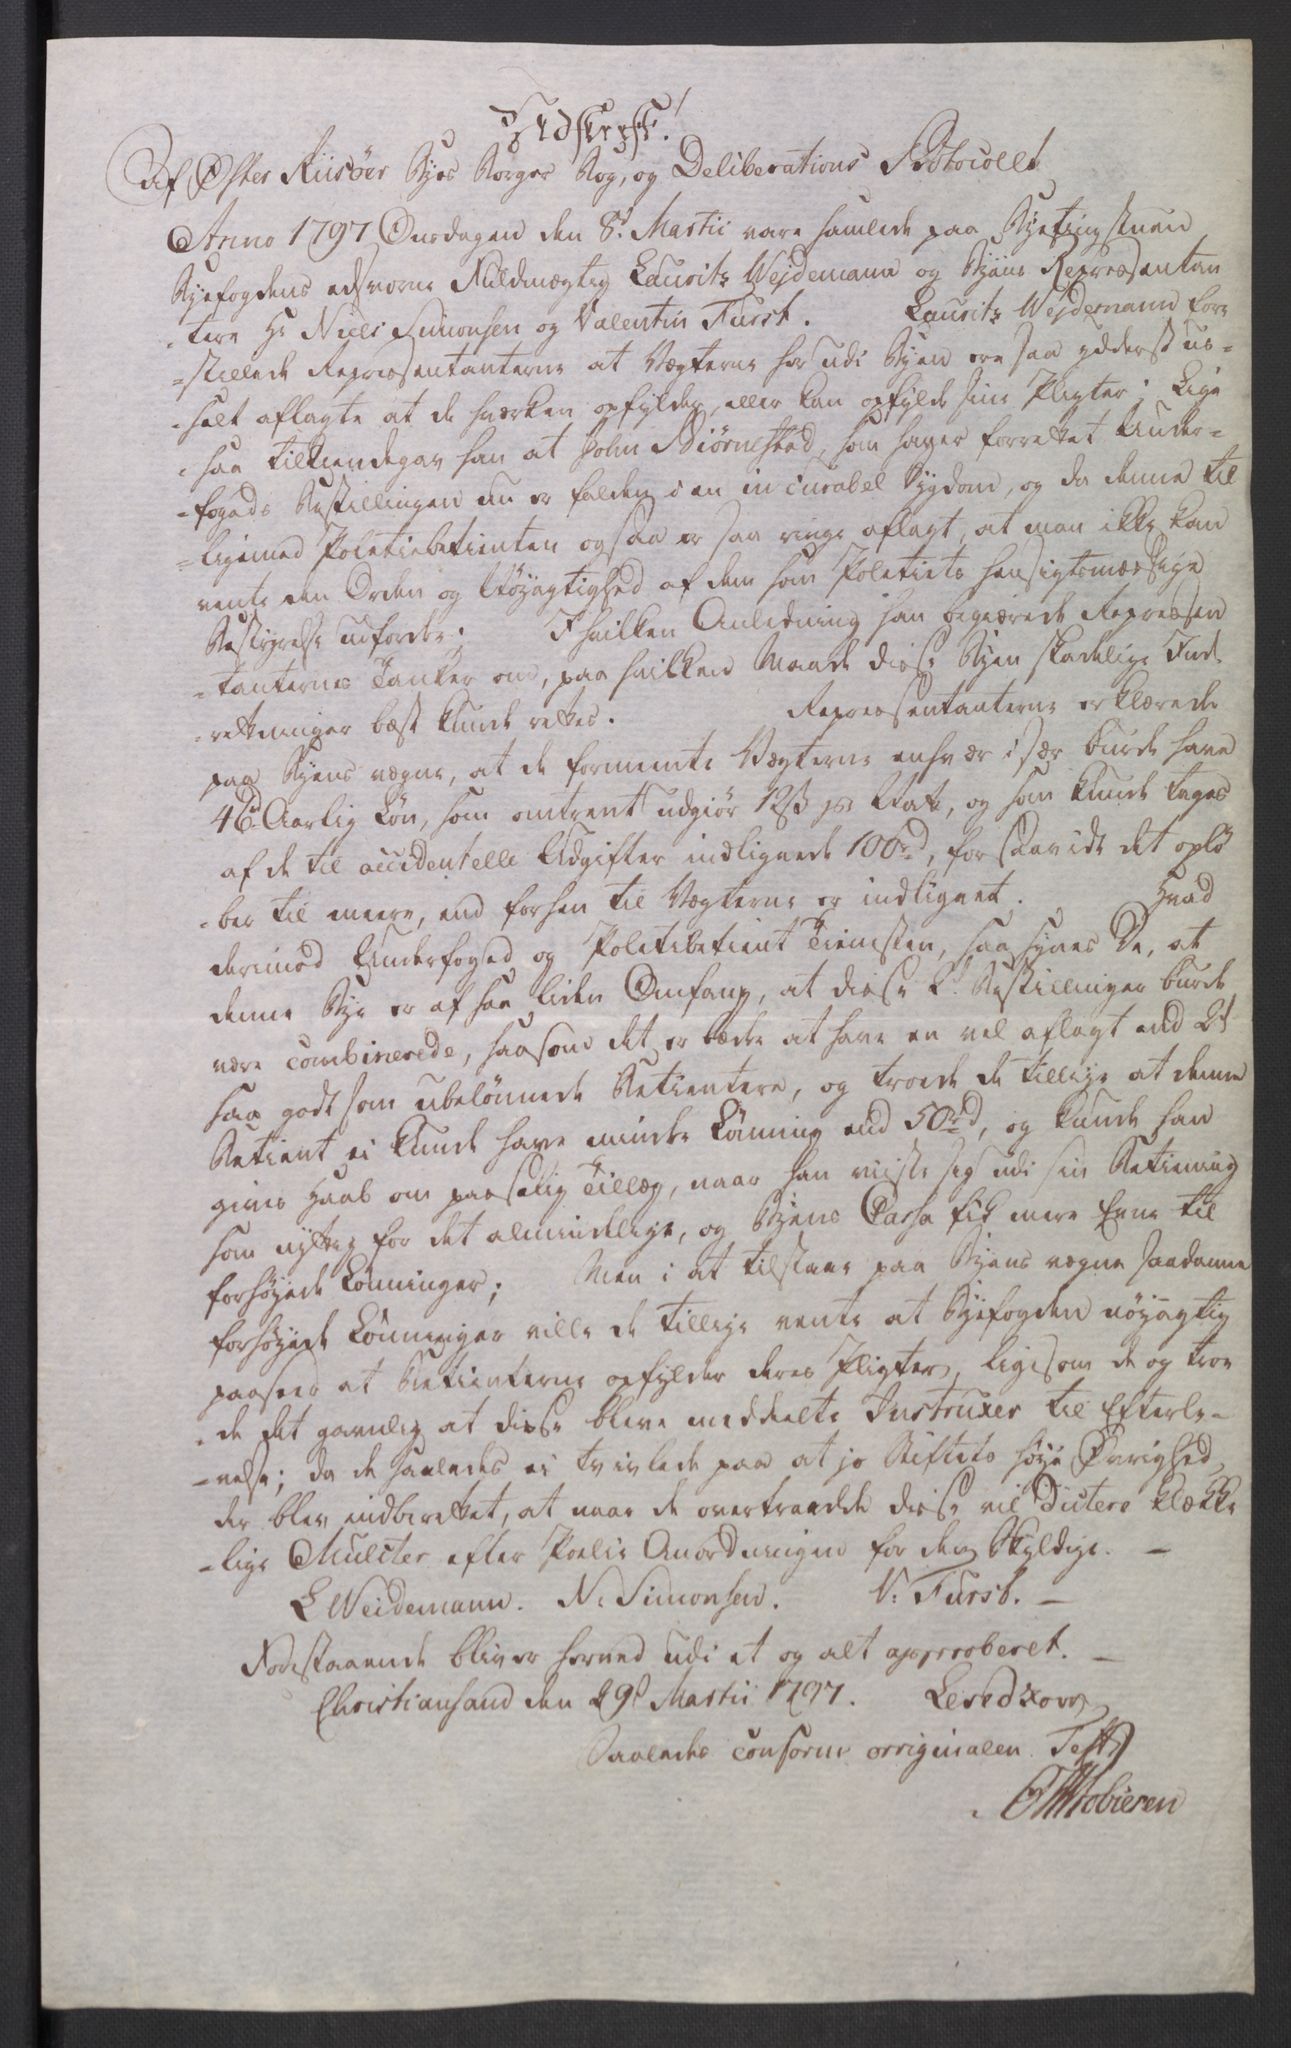 Udskrift!
Af Øster Riisöer Byes Borger Bog, og Deliberations Protocoll
Anno 1797 Onsdagen den 8de Martii vare samlede paa Byetingstuen
Byefogdens edsvorne Fuldmægtig Laurits Wejdemann og Byens Repræsentan
-tere Hr Niels Simonsen og Valentin Furst. Laurits Wejdemann fore
-stillede Repræsentanterne at Vægterne her udi Byen ere saa yderst us-
-selt aflagte at de hverken opfylder, eller kan opfylde sine Pligter; Lige
-saa tilkiendegav han at John Biörnestad, som haver forrettet Under-
-fogeds Bestillingen nu er falden i en incurabel Sygdom, og da denne til
-ligemed Politiebetienten ogsaa er saa ringe aflagt, at man ikke kan
vente den Orden og Nöyagtighed af dem som Politiets hensigtsmæssige
Bestyrelse udfordrer; I hvilken Anledning han begiærede Repræsen
-tanternes Tanker om, paa hvilken Maade disse Byen skadelige Ind-
-retninger best kunde rettes. Repræsentanterne erklærede
paa Byens vegne, at de formeente Vægterne enhver især burde have
46rd Aarlig Lön, som omtrent udgiör 12s pr Nat, og som kunde tages
af de til accidentelle Udgifter indlignede 100rd, forsaavidt det oplö
-ber til meere, end forhen til Vægterne er indlignet. Hvad
derimod Underfoged og Politibetient Tienesten, saa synes De, at
denne Bye er af saa liden Omfang, at disse 2de Bestillinger burde
være combinerede, saasom det er bedre at have en vel aflagt end 2de
saa godt som ubelönnede Betientere, og troede de tillige at denne
Betient ei kunde have mindre Lönning end 50rd, og kunde han
gives Haab om paafölig Tillæg, naar han viiste sig udi sin Betiening
som nyttig for det almindelige, og Byens Cassa fik mere Evne til
forhöyede Lönninger; Men i at tilstaae paa Byens vegne saadanne
forhöyede Lönninger ville de tillige vente at Byefogden nöyagtig
paaseer at Betienterne opfylder deres Pligter, ligesom de og troe
-de det gavnlig at disse bleve meddeelte Instruxer til Efterle-
-velse; da de saaledes ei tvivlede paa at jo Stiftets höye Övrighed,
der blev indberettet, at naar de overtraadde disse vil dictere klække
-lige Mulcter efter Politie Anordningen for den Skyldige. -
L Weidemann. N: Simonsen. V: Furst. -
Forestaaende bliver herved udi et og alt approberet. -
Christiansand den 29de Martii 1797. Levetzow
Saaledes conform originalen Test